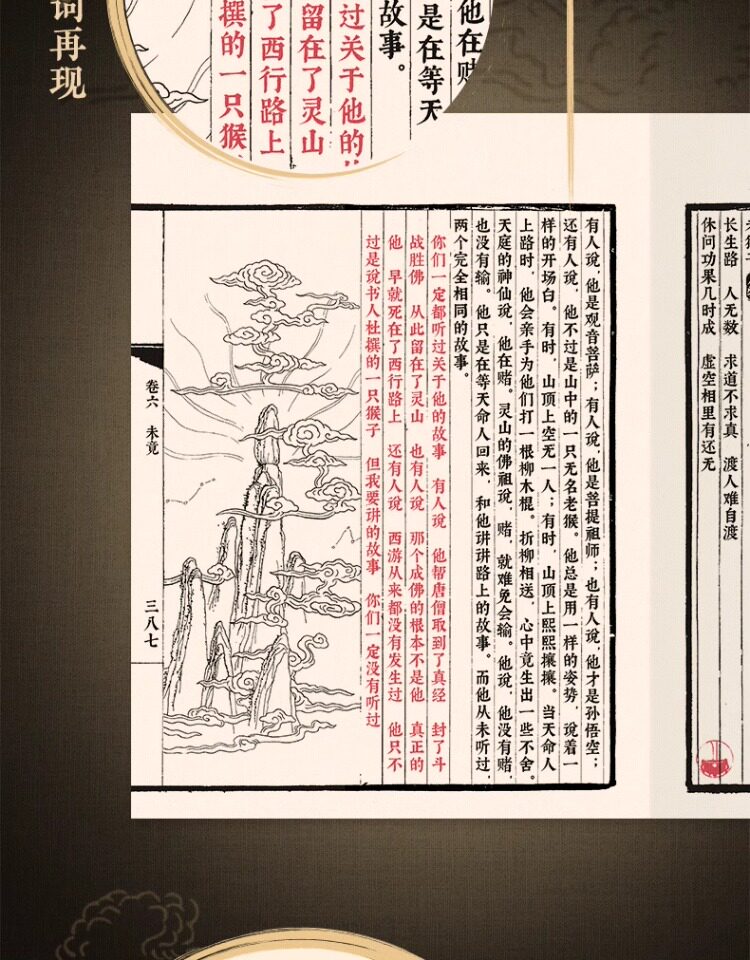 词再现
他在赌
是在等天
故事。
过关于他的
留在了灵山
了西行路上
撰的一只猴
长生路 人无数 求道不求真 渡人难自渡
休问功果几时成 虚空相里有还无
有人说，他是观音菩萨；有人说，他是菩提祖师；也有人说，他才是孙悟空；
还有人说，他不过是山中的一只无名老猴。他总是用一样的姿势，说着一
样的开场白。有时，山顶上空无一人；有时，山顶上熙熙攘攘。当天命人
上路时，他会亲手为他们打一根柳木棍。折柳相送，心中竟生出一些不舍。
天庭的神仙说，他在赌。灵山的佛祖说，赌，就难免会输。他说，他没有赌，
也没有输。他只是在等天命人回来，和他讲讲路上的故事。而他从未听过，
两个完全相同的故事。
你们一定都听过关于他的故事 有人说 他帮唐僧取到了真经 封了斗
战胜佛 从此留在了灵山 也有人说 那个成佛的根本不是他 真正的
他 早就死在了西行路上 还有人说 西游从来都没有发生过 他只不
过是说书人杜撰的一只猴子 但我要讲的故事 你们一定没有听过
卷六 未竟
三八七